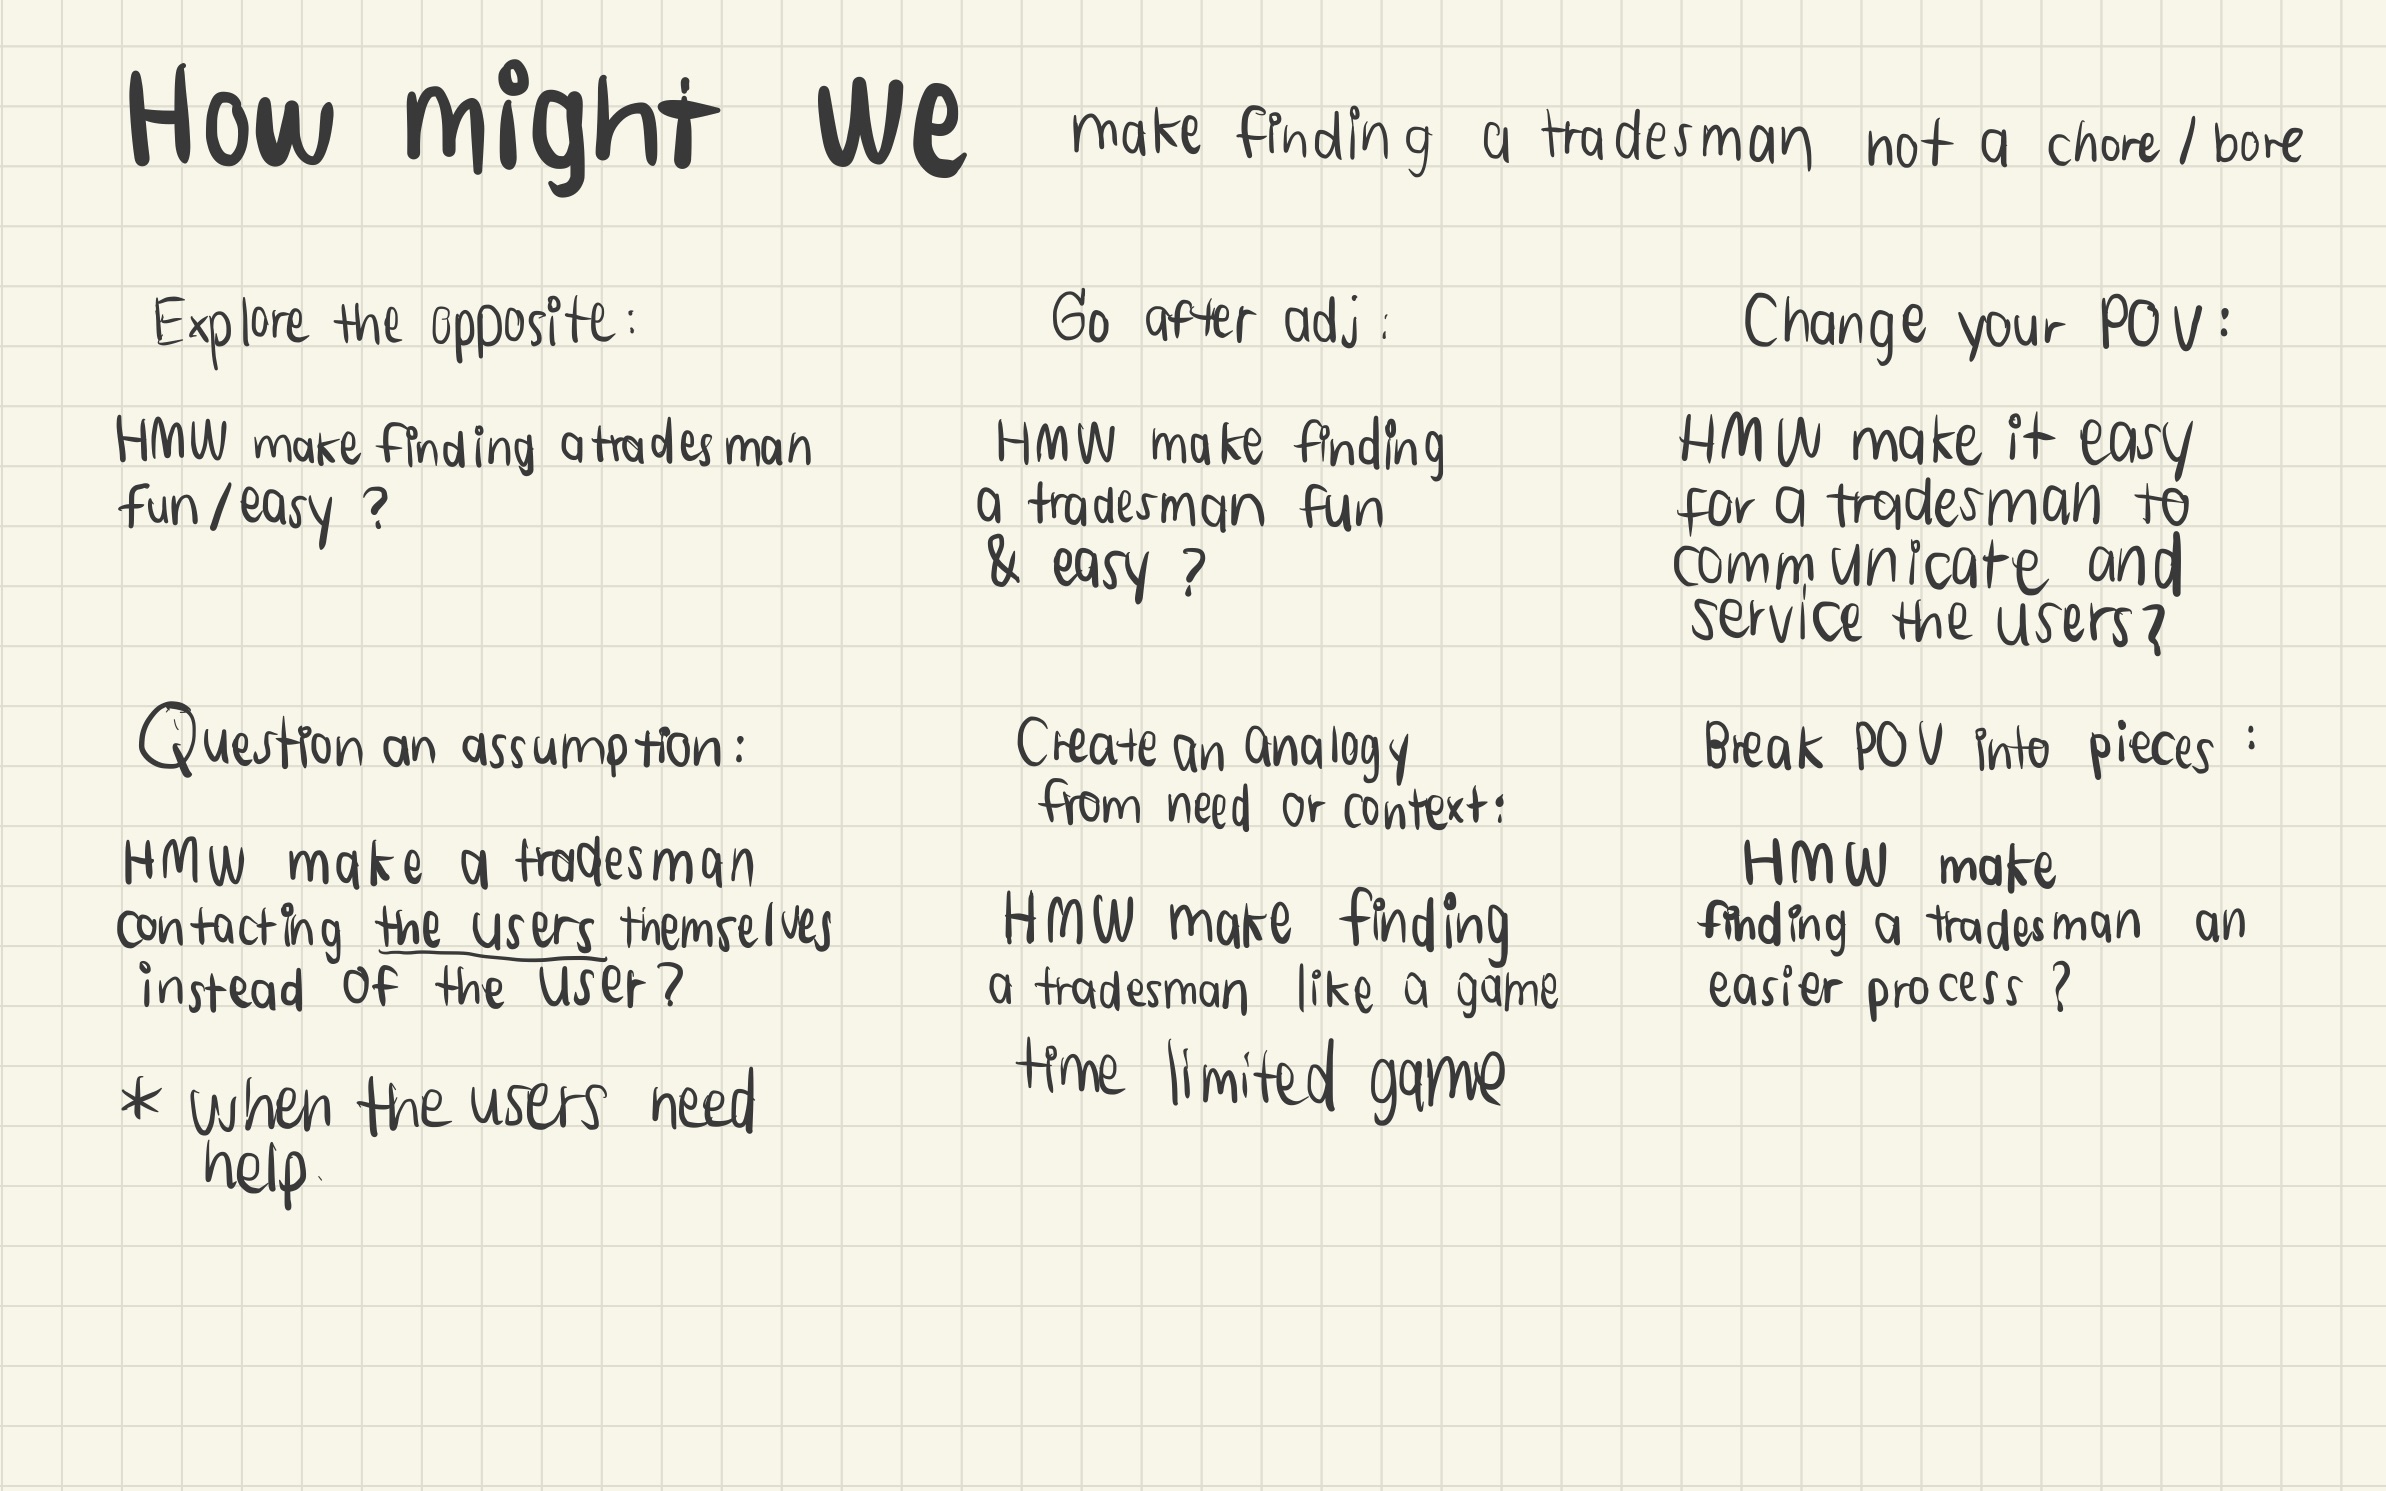 How might we make finding a tradesman not a chore/bore
Explore the opposite:
HMW make finding a tradesman
fun/easy?
Go after adj:
HMW make finding
a tradesman fun
& easy?
Change your POV:
HMW make it easy
for a tradesman to
communicate and
service the users?
Question an assumption:
HMW make a tradesman
contacting the users themselves
instead of the user?
* when the users need
help.
Create an analogy
from need or context:
HMW make finding
a tradesman like a game
time limited game
Break POV into pieces:
HMW make
finding a tradesman an
easier process?